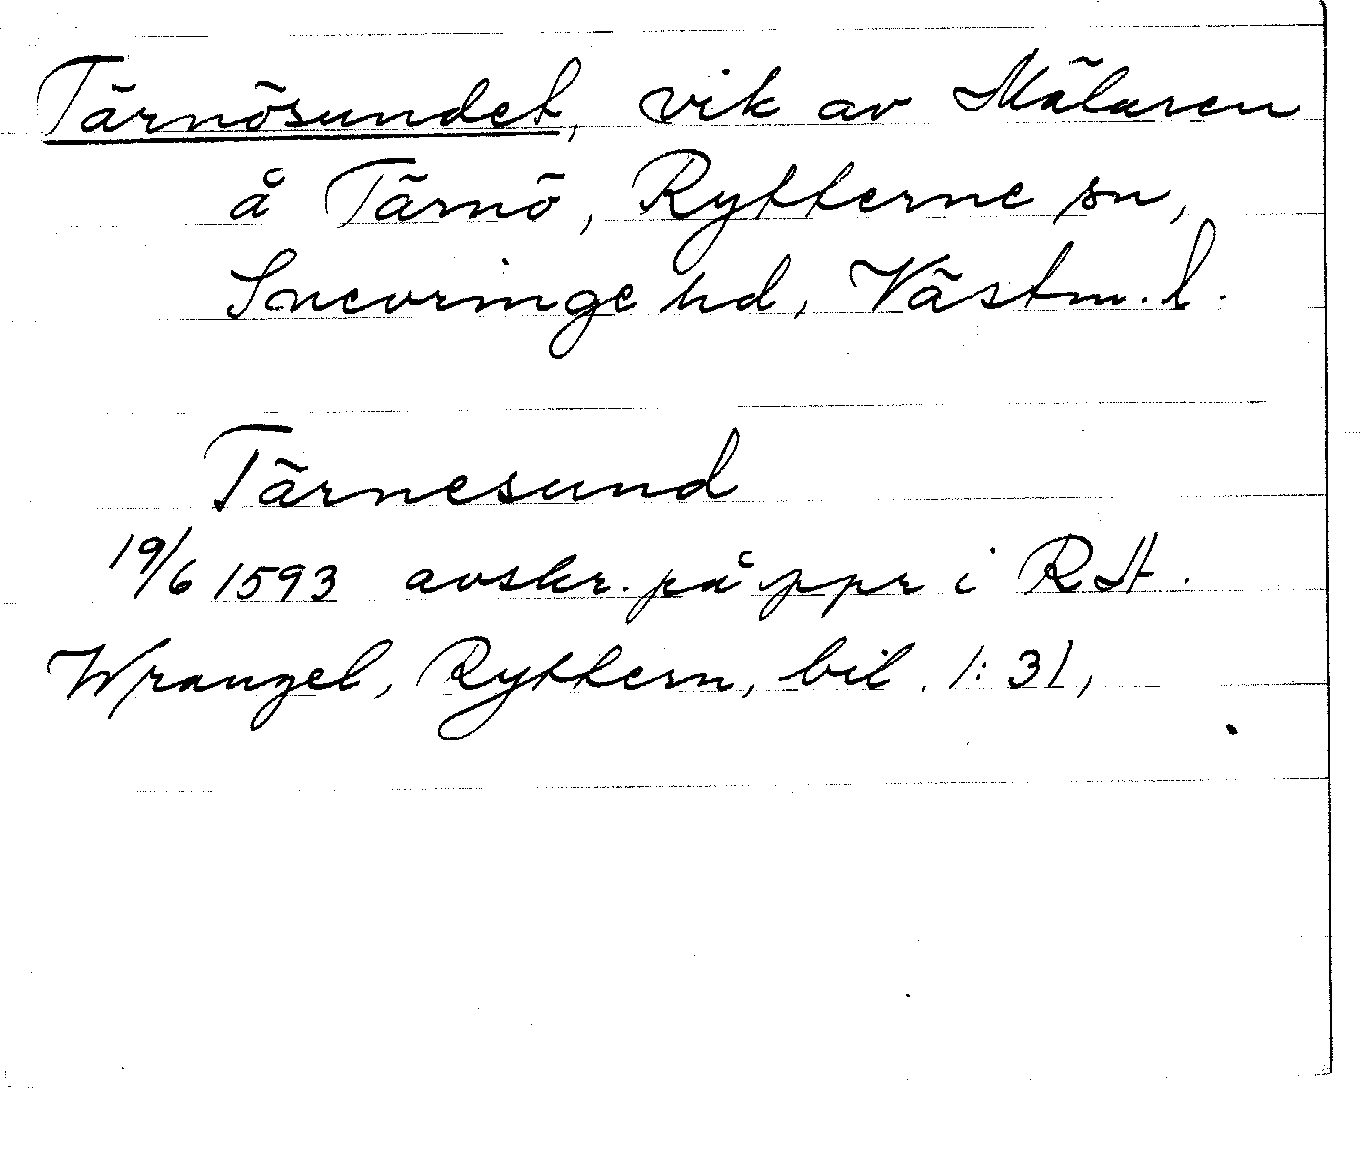 Tärnösundet, vik av Mälaren
å Tärnö, Rytterne sn,
Snevringe hd, Västm. l.
Tärnesund
19/6 1593 avskr. på ppr i RA.
Wrangel, Ryttern, bil. 1:31,